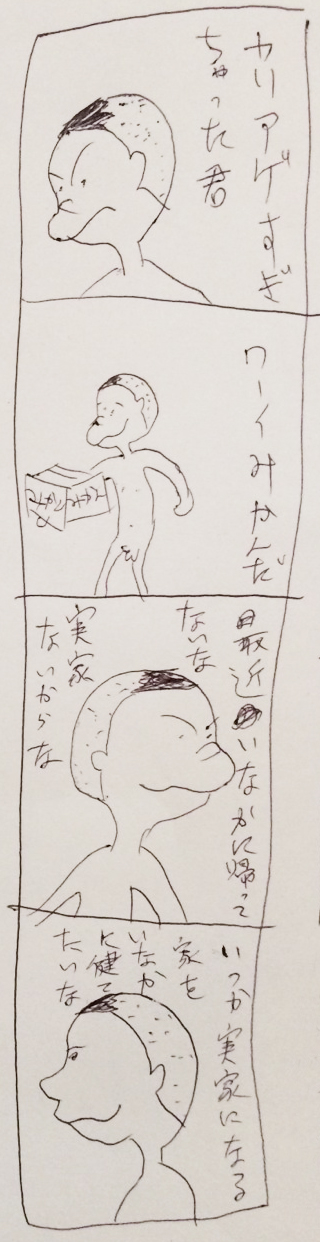 カリアゲすぎ
ちゃった君
ワーイみかんだ
みかん
みかん
最近いなかに帰って
ないな
実家
ないからな
いつか実家になる
家を
いなか
に健て
たいな